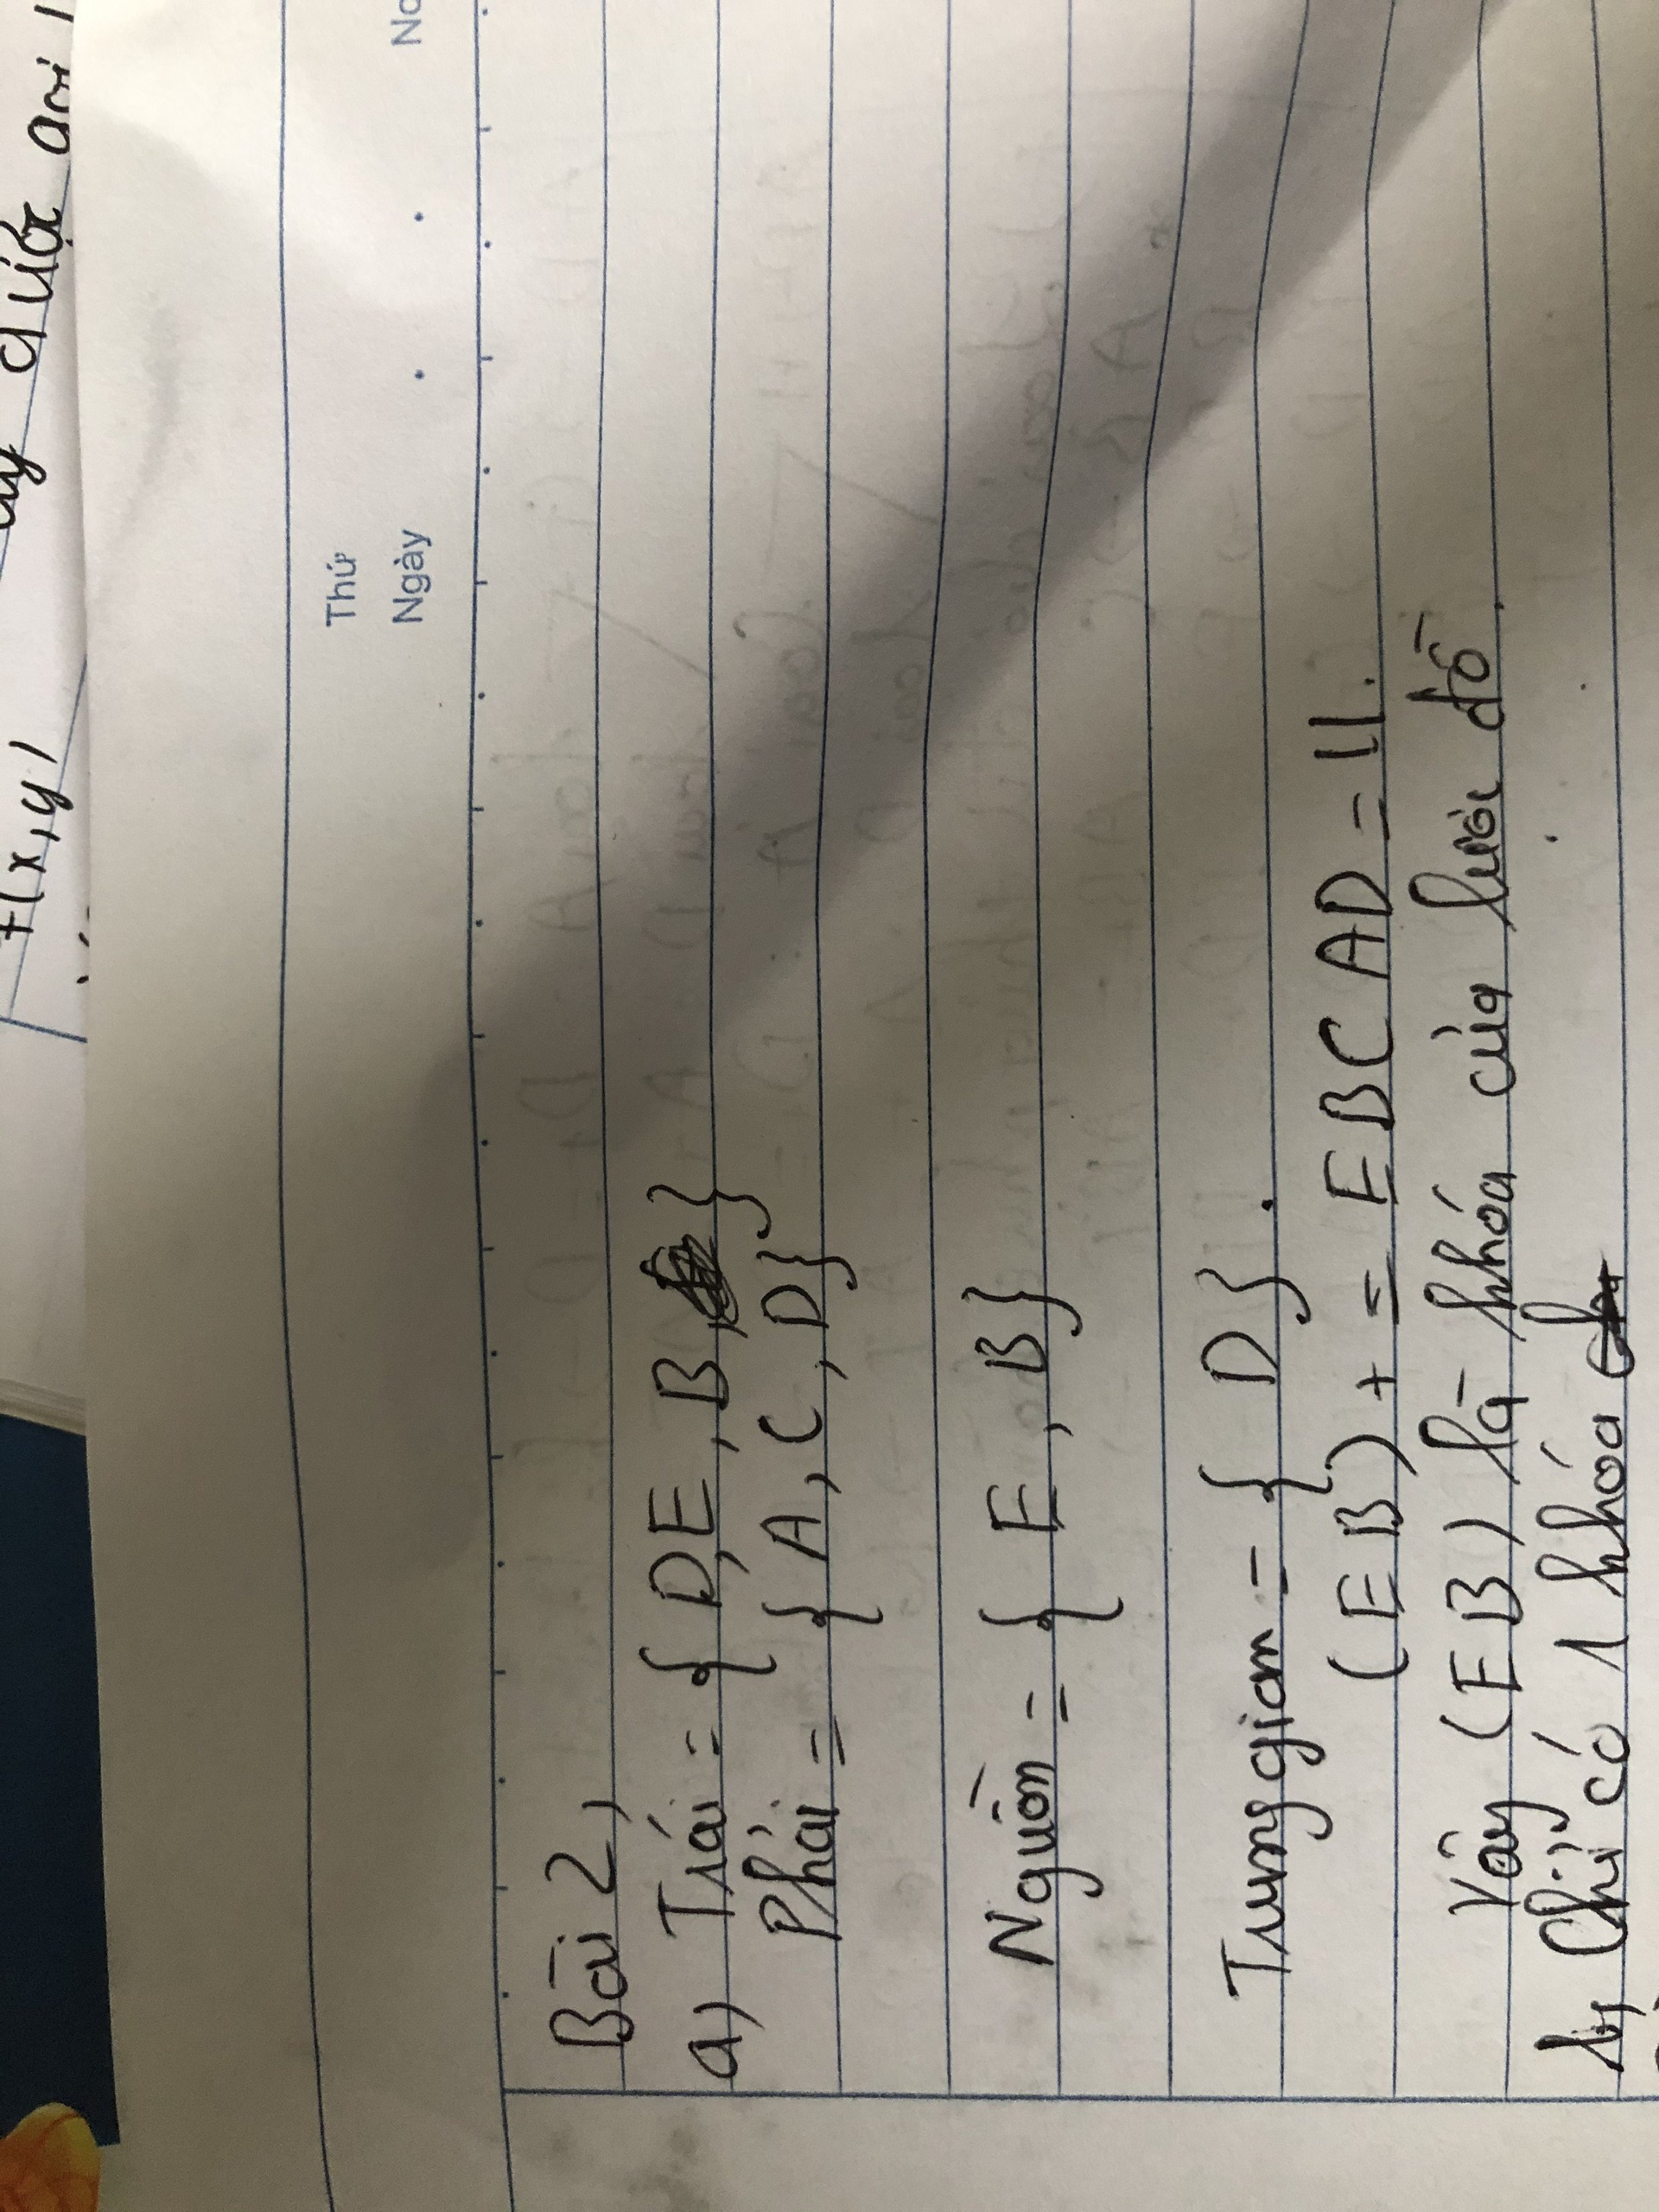 f(x,y)
được
Thứ
Ngày
No
Bài 2,
a) Trái = { D, E, B, }
Phải = { A, C, D}
Nguồn = { E, B}
Trung gian = { D}.
(EB)+ = EBCAD = U.
Vậy (EB) là khóa của lược đồ.
b, Chỉ có 1 khóa